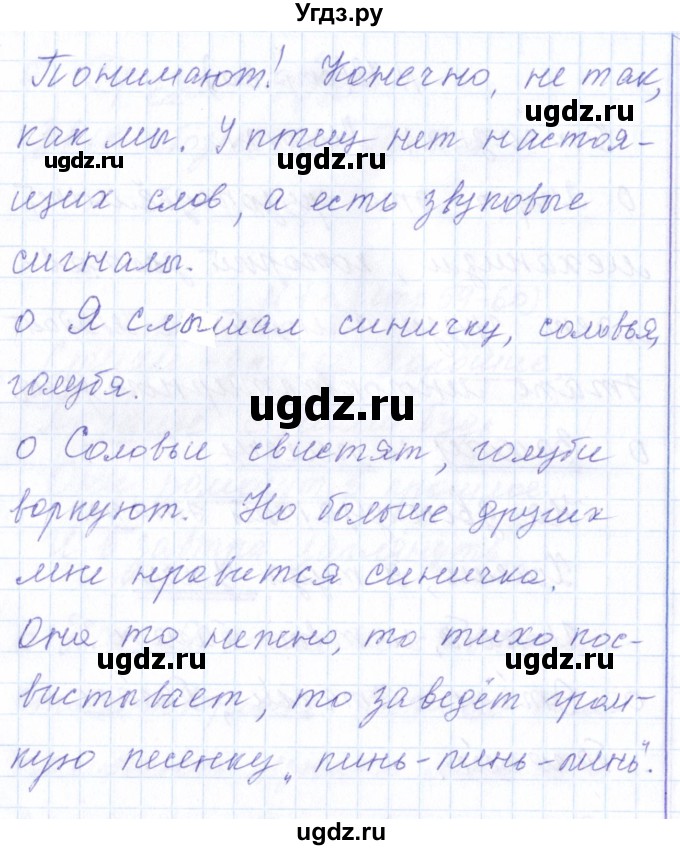 Угдз.ру
Понимают! Конечно, не так,
ugdz.ru
как мы. У птиц нет настоя-
ugdz.ru
щих слов, а есть звуковые
ugdz.ru
сигналы.
о Я слышал синичку, соловья,
голубя.
ugdz.ru
о Соловьи свистят, голуби
ugdz.ru
воркуют. Но больше других
ugdz.ru
мне нравится синичка.
Она то нежно, то тихо пос-
ugdz.ru
ugdz.ru
вистывает, то заведёт гром-
кую песенку „пинь-пинь-пинь“.
ugdz.ru
ugdz.ru